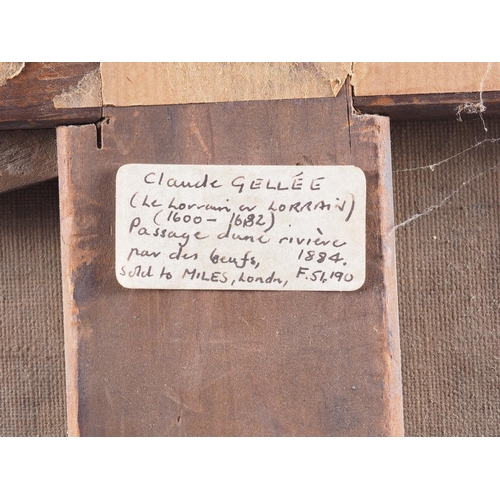 Claude GELLÉE
(Le Lorrain or LORRAIN)
(1600-1682)
Passage d'une rivière
par des bœufs, 1884.
Sold to MILES, Londn, F.51,190